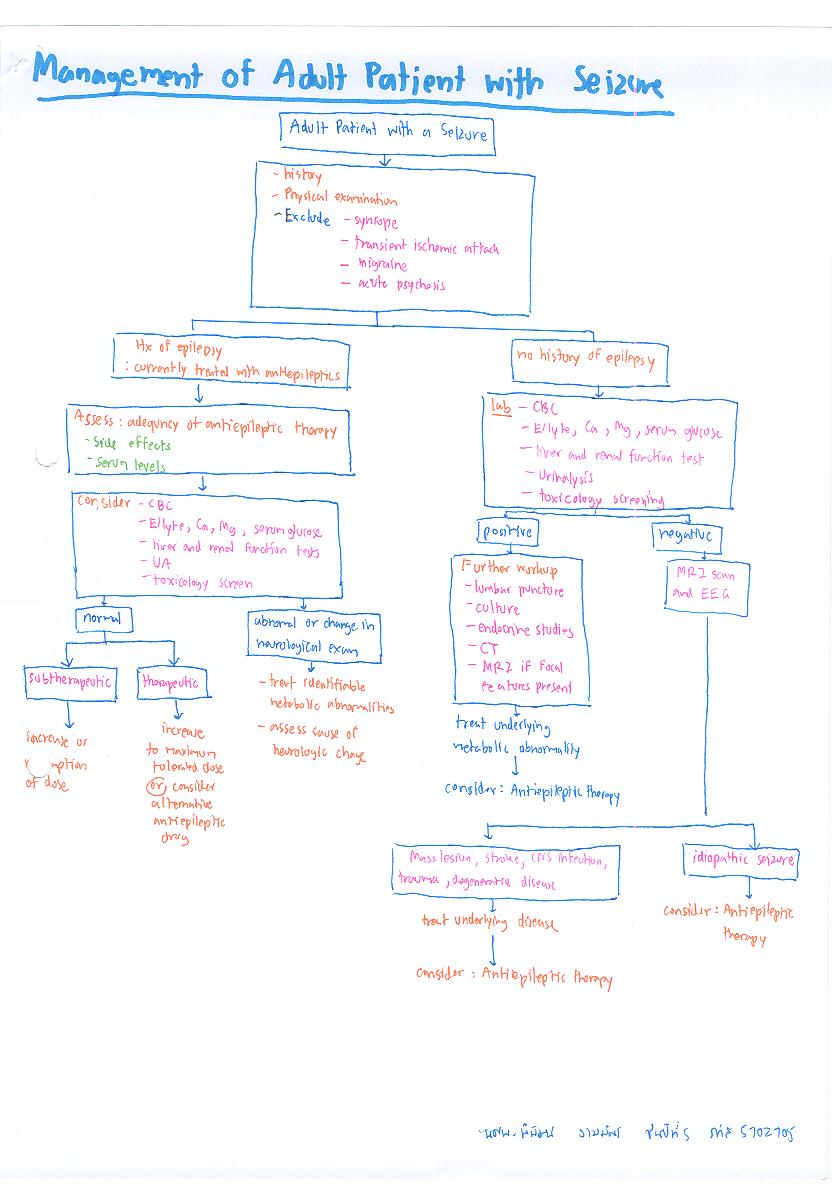 Management of Adult Patient with Seizure
Adult Patient with a Seizure
- history
- Physical examination
- Exclude - syncope
- transient ischemic attack
- migraine
- acute psychosis
Hx of epilepsy
: currently treated with antiepileptics
Assess : adequncy of antiepileptic therapy
- Side effects
- Serum levels
Consider - CBC
- E/lyte, Ca, Mg, serum glucose
- liver and renal function tests
- UA
- toxicology screen
normal
abnormal or change in
neurological exam
subtherapeutic
therapeutic
increase or
of dose
increase
to maximum
tolerated dose
or, consider
alternative
antiepileptic
drug
- treat identifiable
metabolic abnormalities
- assess cause of
neurologic change
no history of epilepsy
lab - CBC
- E/lyte, Ca, Mg, serum glucose
- liver and renal function test
- Urinalysis
- toxicology screening
positive
negative
Further workup
- lumbar puncture
- culture
- endocrine studies
- CT
- MRI if focal
features present
MRI scan
and EEG
treat underlying
metabolic abnormality
consider : Antiepileptic therapy
Mass lesion, stroke, CNS infection,
trauma, degenerative disease
idiopathic seizure
treat underlying disease
consider : Antiepileptic therapy
consider : Antiepileptic
therapy
ชั้นปีที่ 5 รหัส 5702705